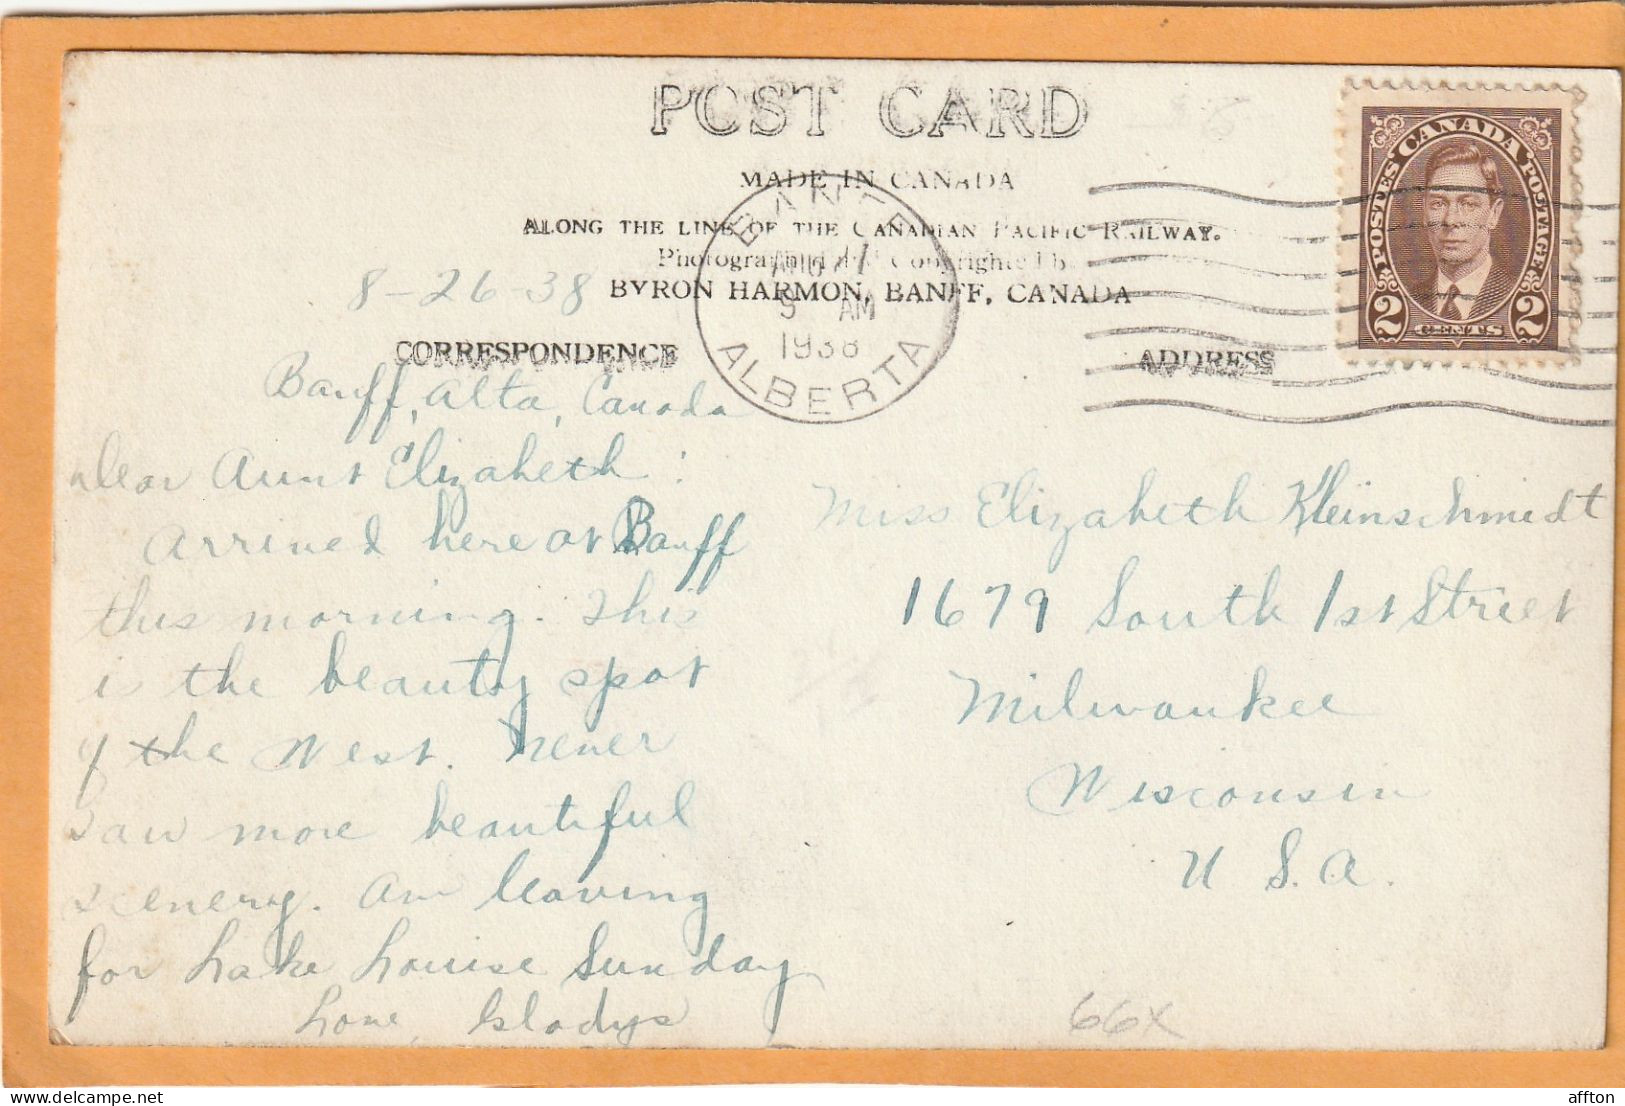 POST CARD
MADE IN CANADA
ALONG THE LINE OF THE CANADIAN PACIFIC RAILWAY.
Photographed and Copyrighted by
BYRON HARMON, BANFF, CANADA
8-26-38
CORRESPONDENCE
ADDRESS
BANFF
AUG 27
9 AM
1938
ALBERTA
POSTES CANADA POSTAGE
2 CENTS 2
Banff, Alta, Canada
Dear Aunt Elizabeth:
Arrived here at Banff
this morning. This
is the beauty spot
of the West. Never
saw more beautiful
scenery. Am leaving
for Lake Louise Sunday
Love, Gladys
Miss Elizabeth Kleinschmidt
1679 South 1st Street
Milwaukee
Wisconsin
U.S.A.
66X
affton